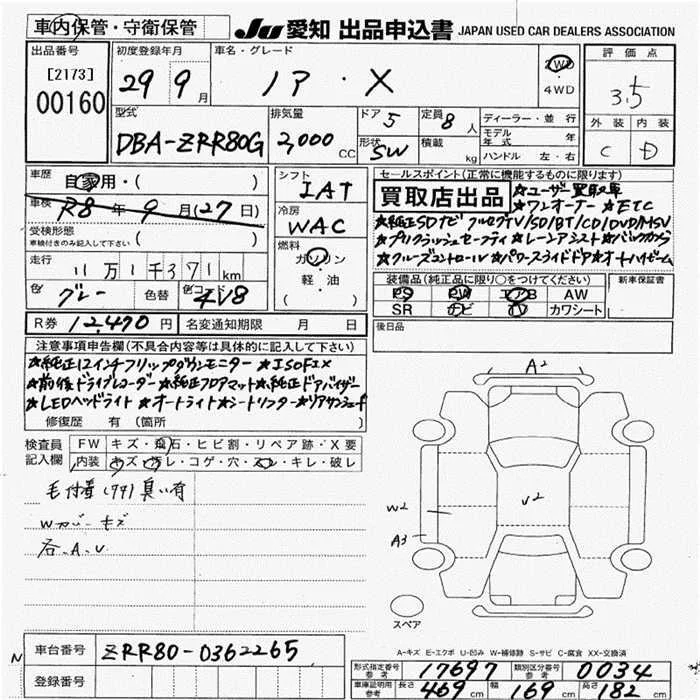 車内保管・守衛保管
JU 愛知 出品申込書 JAPAN USED CAR DEALERS ASSOCIATION
出品番号
[2173]
00160
初度登録年月
29 9 月
車名・グレード
ノア・X
2WD
4WD
評価点
3.5
外装 内装
C D
型式
DBA-ZRR80G
排気量
2,000 CC
ドア 5
形状 SW
定員 8 人
積載 kg
ディーラー・並行
モデル年式 年
ハンドル 左・右
車歴
自家用・( )
車検 R8 年 9 月(27日)
受検形態
車検付きのみ記入して下さい ( )
走行
11万1千371 km
色 グレー 色替 色コード 4V8
R券 12,470 円 名変通知期限 月 日
シフト
IAT
冷房
WAC
燃料
ガソリン
軽・油
( )
セールスポイント(正常に機能するものに限ります)
買取店出品 ★ユーザー買取車
★ワンオーナー ★ETC
★純正SDナビ フルセグTV/SD/BT/CD/DVD/MSV
★プリクラッシュセーフティ ★レーンアシスト ★バックカメラ
★クルーズコントロール ★パワースライドドア ★オートハイビーム
装備品(純正品に限り○をつけてください)
PS PW エアB AW
SR ナビ TV カワシート
新車保証書
後日品
注意事項申告欄(不具合内容等は具体的に記入して下さい)
★純正12インチフリップダウンモニター ★ISOFIX
★前後ドライブレコーダー ★純正フロアマット ★純正ドアバイザー
★LEDヘッドライト ★オートライト ★シートリフター ★リアサンシェード
修復歴 有(箇所 )
検査員記入欄
FW キズ・飛石・ヒビ割・リペア跡・X要
内装 キズ・汚レ・コゲ・穴・スレ・キレ・破レ
毛付着(99) 臭い有
Wカバーキズ
各、A、U
A2
V2
W2
A3
スペア
N
車台番号 ZRR80-0362265
登録番号
A-キズ E-エクボ U-凹み W-補修跡 S-サビ C-腐食 XX-交換済
形式指定番号 参考 17697 類別区分番号 参考 0034
車庫証明用 参考 長さ 469 cm 幅 169 cm 高さ 182 cm